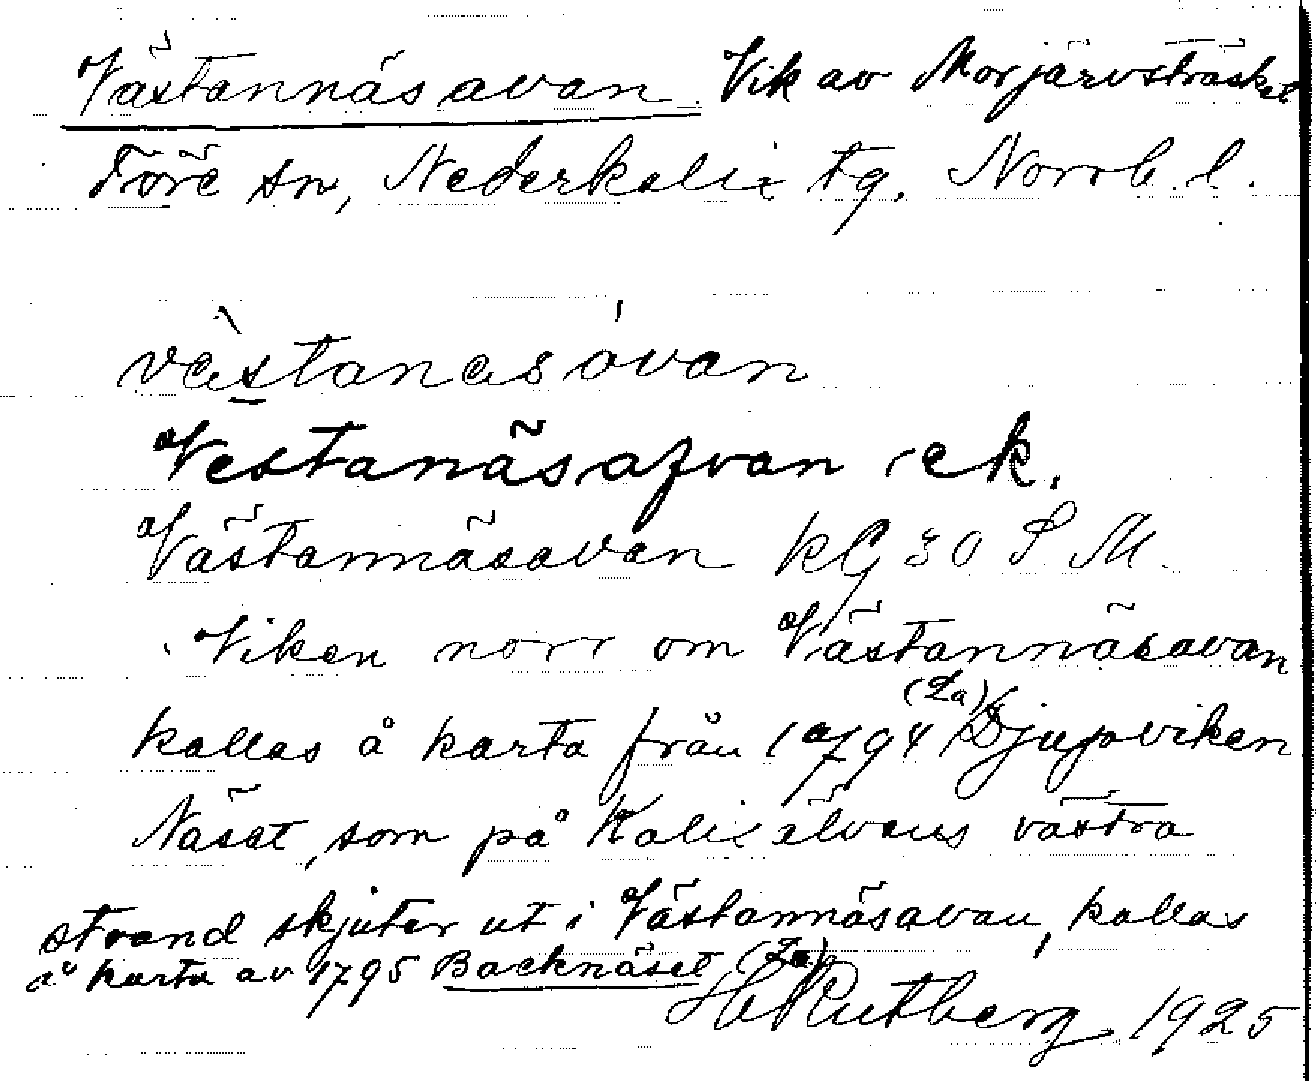 Västannäsavan Vik av Morjärvsträsket
Töre sn, Nederkalix tg. Norrb. l.
västanäsavan
Vestanäsafvan ek.
Västannäsavan KG 30 S M.
Viken norr om Västannäsavan
kallas å karta från 1794 (La) Djupviken
Näset, som på Kalixälvens västra
strand skjuter ut i Västannäsavan, kallas
å karta av 1795 Backnäset (La)
H Rutberg 1925